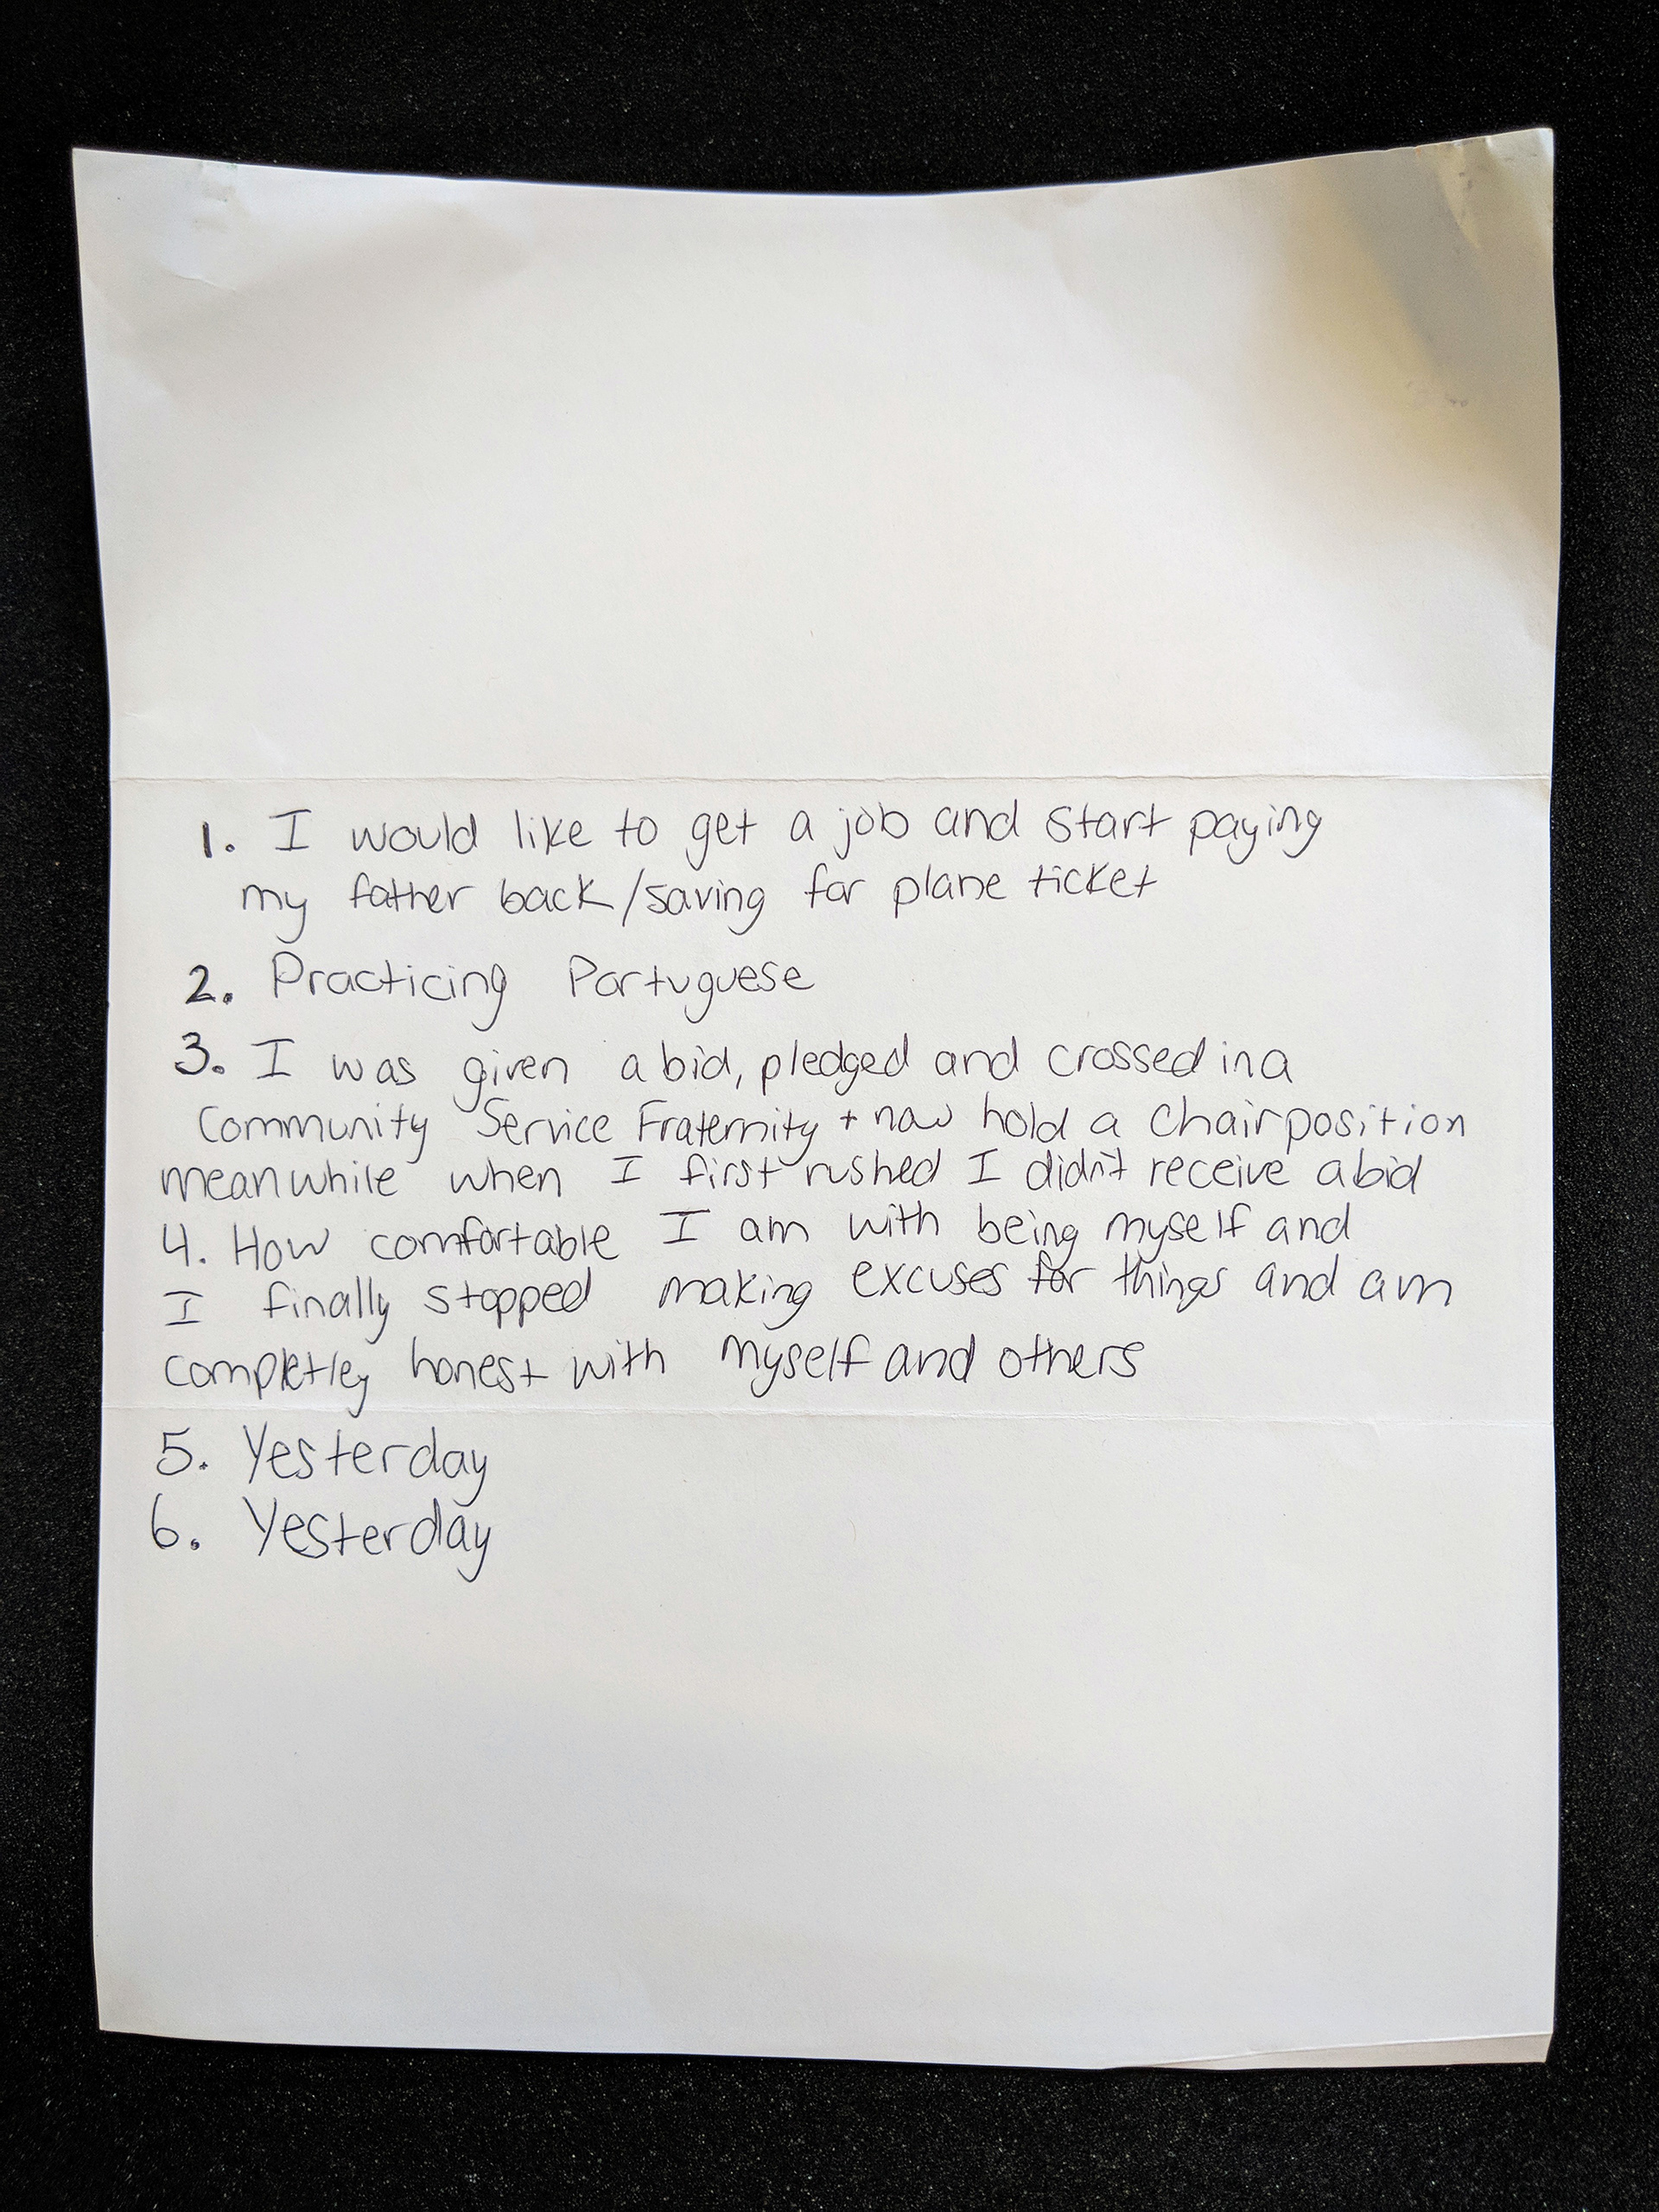 1. I would like to get a job and start paying
my father back/saving for plane ticket
2. Practicing Portuguese
3. I was given a bid, pledged and crossed in a
Community Service Fraternity + now hold a chair position
meanwhile when I first rushed I didn't receive a bid
4. How comfortable I am with being myself and
I finally stopped making excuses for things and am
completley honest with myself and others
5. Yesterday
6. Yesterday